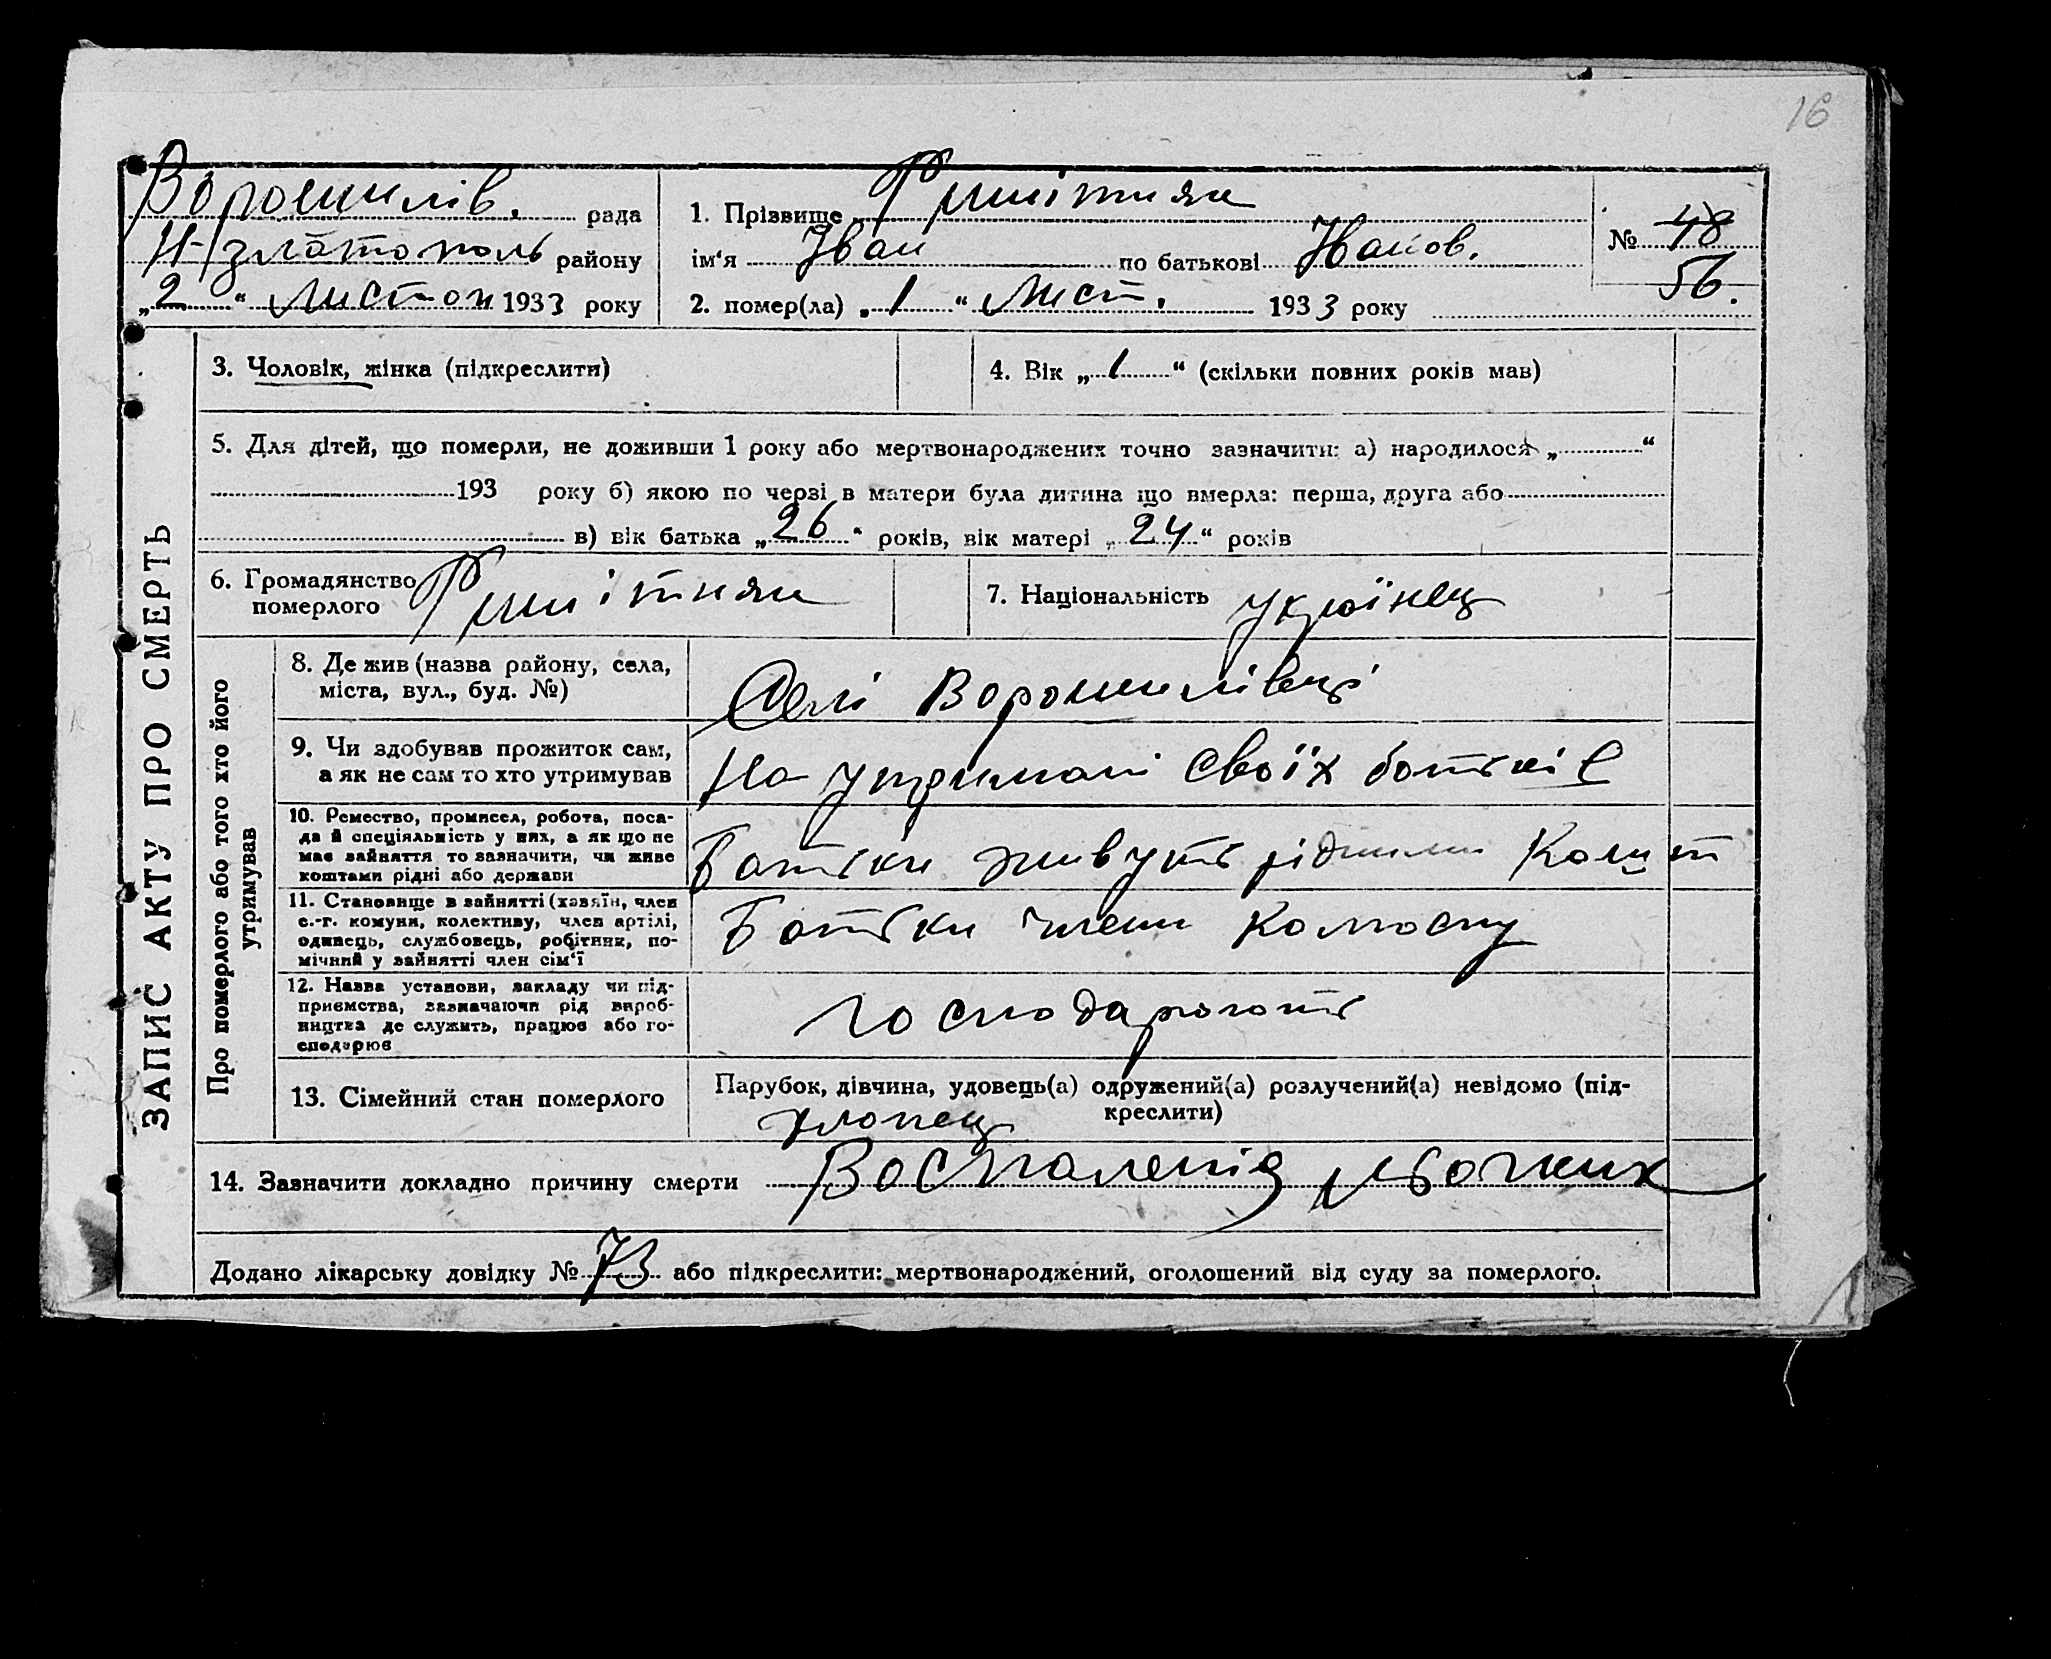 16
Ворошилів. рада
Н-златополь району
„2“ Листоп 1933 року
1. Прізвище
ім'я Іван по батькові Іванов.
2. помер(ла) „1“ Лист. 1933 року
№ 48
56.
ЗАПИС АКТУ ПРО СМЕРТЬ
3. Чоловік, жінка (підкреслити)
4. Вік „1“ (скільки повних років мав)
5. Для дітей, що померли, не доживши 1 року або мертвонароджених точно зазначити: а) народилося „ “
193 року б) якою по черзі в матери була дитина що вмерла: перша, друга або
в) вік батька „26“ років, вік матері „24“ років
6. Громадянство
померлого
7. Національність українец
Про померлого або того хто його
утримував
8. Де жив (назва району, села,
міста, вул., буд. №)
Селі Ворошилівці
9. Чи здобував прожиток сам,
а як не сам то хто утримував
На утримані своїх батьків
10. Ремество, промисел, робота, поса-
да й спеціяльність у них, а як що не
має зайняття то зазначити, чи живе
коштами рідні або держави
Батьки живуть рідними Кошт
11. Становище в зайнятті (хазяїн, член
с.-г. комуни, колективу, член артілі,
одинець, службовець, робітник, по-
мічний у зайнятті член сім'ї
Батьки члени Колгоспу
12. Назва установи, закладу чи під-
приємства, зазначаючи рід вироб-
ництва де служить, працює або го-
сподарює
господарюють
13. Сімейний стан померлого
Парубок, дівчина, удовець(а) одружений(а) розлучений(а) невідомо (під-
креслити)
хлопец
14. Зазначити докладно причину смерти Воспаленія льогких
Додано лікарську довідку № 73 або підкреслити: мертвонароджений, оголошений від суду за померлого.